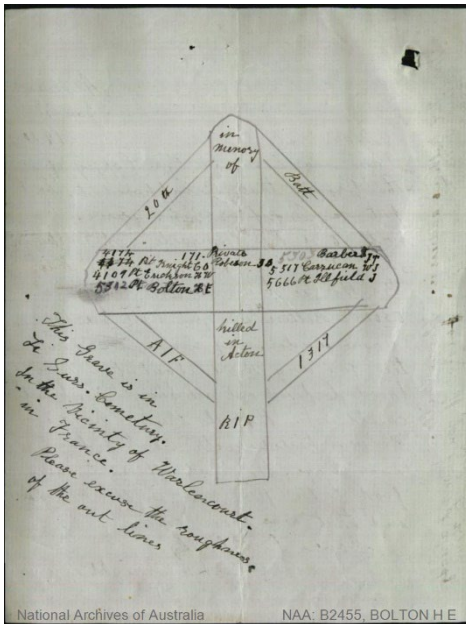 in
memory
of
20th
Batt
4174
4174 Pt Knight G D
4109 Pt Erickson H W
5302 Pt Bolton H E
171. Private
Robeson J B
Barber J T
5317 Carrucan W J
5666 Pt Illfield J
killed
in
Acton
AIF
1317
RIP
This Grave is in
Le Surs. Cemetury.
In the Vicinty of Warlencourt.
in France.
Please excuse the roughness
of the out lines
National Archives of Australia
NAA: B2455, BOLTON H E